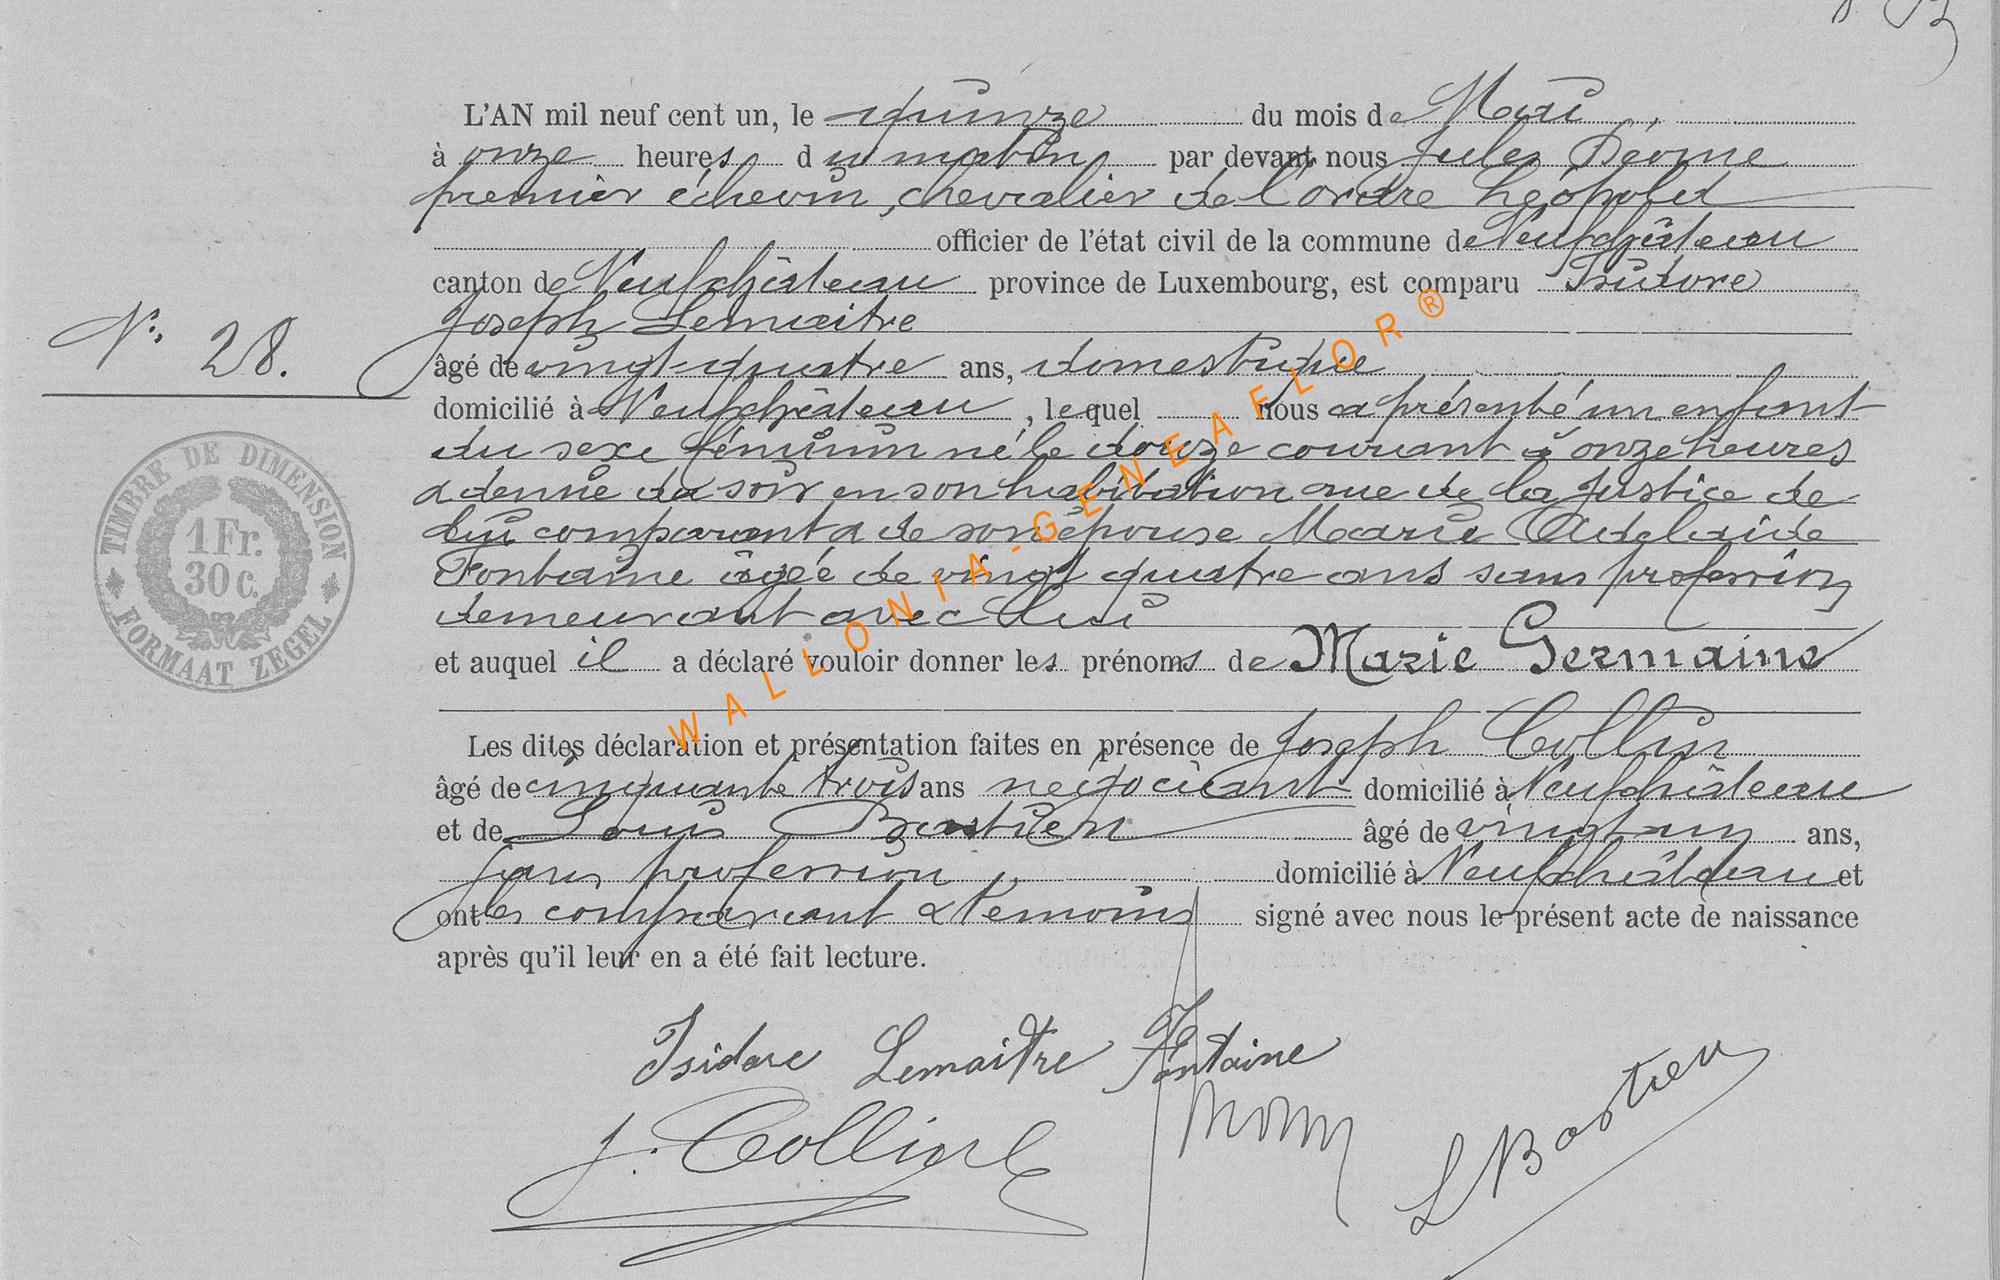 L'AN mil neuf cent un, le quinze du mois de Mai,
à onze heures du matin, par devant nous Jules
premier échevin, chevalier de l'ordre Léopold
officier de l'état civil de la commune de Neufchâteau
canton de Neufchâteau province de Luxembourg, est comparu Isidore
Joseph Lemaitre
N° 28.
âgé de vingt-quatre ans, domestique
domicilié à Neufchâteau, lequel nous a présenté un enfant
du sexe féminin né le douze courant à onze heures
& demie du soir en son habitation rue de la Justice de
lui comparant & de son épouse Marie Adelaïde
Fontaine âgée de vingt quatre ans sans profession
demeurant avec lui
et auquel il a déclaré vouloir donner les prénoms de Marie Germaine
Les dites déclaration et présentation faites en présence de Joseph Collin
âgé de cinquante trois ans négociant domicilié à Neufchâteau
et de Louis Bastien âgé de vingt un ans,
sans profession domicilié à Neufchâteau et
ont les comparant & témoins signé avec nous le présent acte de naissance
après qu'il leur en a été fait lecture.
Isidore Lemaitre Fontaine
J. Collin
L Bastien
TIMBRE DE DIMENSION
1 Fr.
30 c.
FORMAAT ZEGEL
WALLONIA-GENEAFLOR®